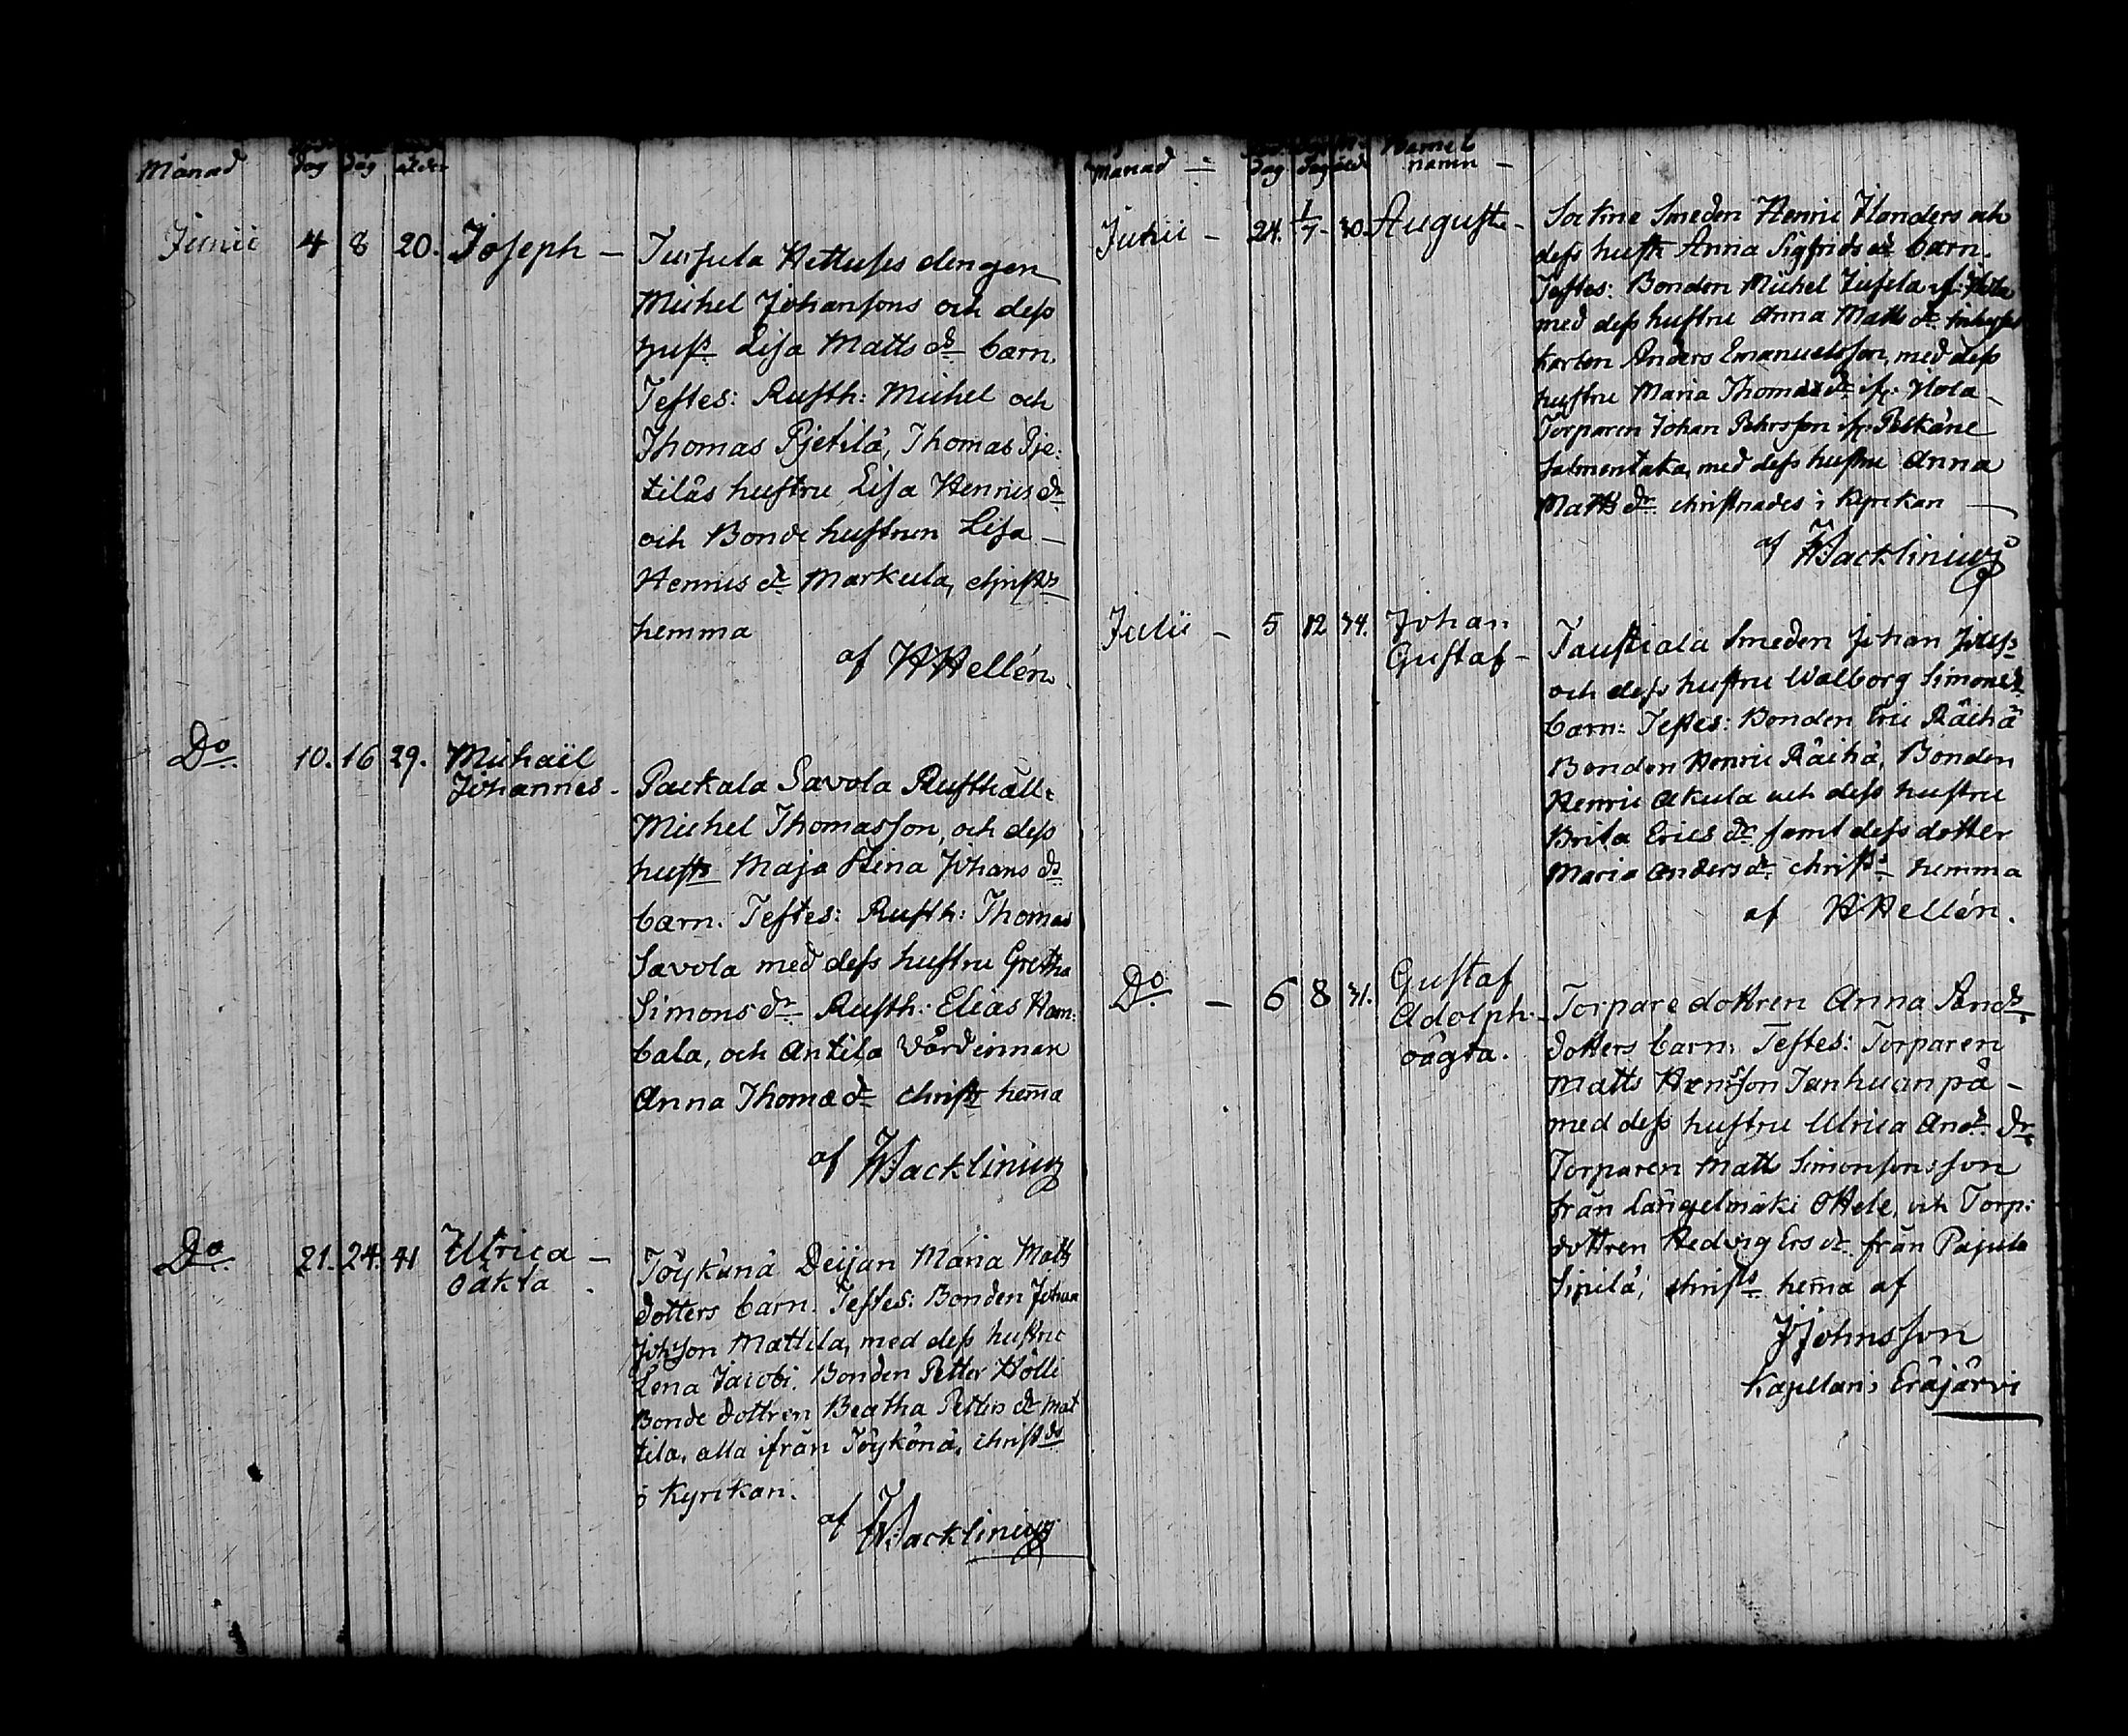 Månad dag dag ålder
Junii 4 8 20. Joseph —
Tursula Hettuses drengen
Michel Johansons och dess
hust Lisa Matts dr barn.
Testes: Rusth: Michel och
Thomas Pjetilä, Thomas Pje:
tiläs hustru Lisa Henrics dr
och Bonde hustrun Lisa —
Henrics dr Markula, christs
hemma
af HHellén.
Do 10. 16 29. Michaël
Johannes.
Packala Savola Rusthåll:
Michel Thomasson, och dess
hustr Maja Stina Johans dr
barn. Testes: Rusth: Thomas
Savola med dess hustru Gretha
Simons dr Rusth: Elias Ham:
bala, och Antila Värdinnan
Anna Thomæ dr christs hem̄a
af Wacklinius
Do 21. 24. 41 Ulrica —
oäkta.
Töykänä Deijan Maria Matts
dotters barn. Testes: Bonden Johan
Johsson Mattila, med dess hustru
Lena Jacobi. Bonden Petter Hölli
Bonde dottren Beatha Petters dr Mat
tila, alla ifrån Töykänä, christds
i Kyrkan.
af Wacklinius
Månad — dag dag åld: Barnets
namn —
Junii — 24. 1/7 - 30. August —
Sockne Smeden Henric Flanders och
dess hustr Anna Sigfrids dr barn.
Testes: Bonden Michel
med dess hustru Anna Matts dr
karlen Anders Emanuelsson, med dess
hustru Maria Thomas dr ifr: Uola —
Torparen Johan Pehrsson ifr: Pelkäne
Salmentaka, med dess hustru Anna
Matts dr christnades i Kyrkan —
af Wacklinius
Julii — 5 12 34. Johan
Gustaf —
Taustiala Smeden Johan
och dess hustru Walborg Simons dr
barn: Testes: Bonden Eric Räihä
Bonden Henric Räihä, Bonden
Henric Akula och dess hustru
Brita Erics dr samt dess dotter
Maria Anders dr christs hemma
af HHellén.
Do — 6 8 31. Gustaf
Adolph. —
oägta.
Torpare dottren Anna Ands
dotters barn: Testes: Torparen
Matts Hensson Janhuanpä —
med dess hustru Ulrica And: dr
Torparen Matts Simonsonsson
från Längelmäki Attele, och Torp:
dottren Hedvig Ers dr från Pajula
Sipilä, christs hem̄a af
JJohnsson
Kapellan i Eräjärvi